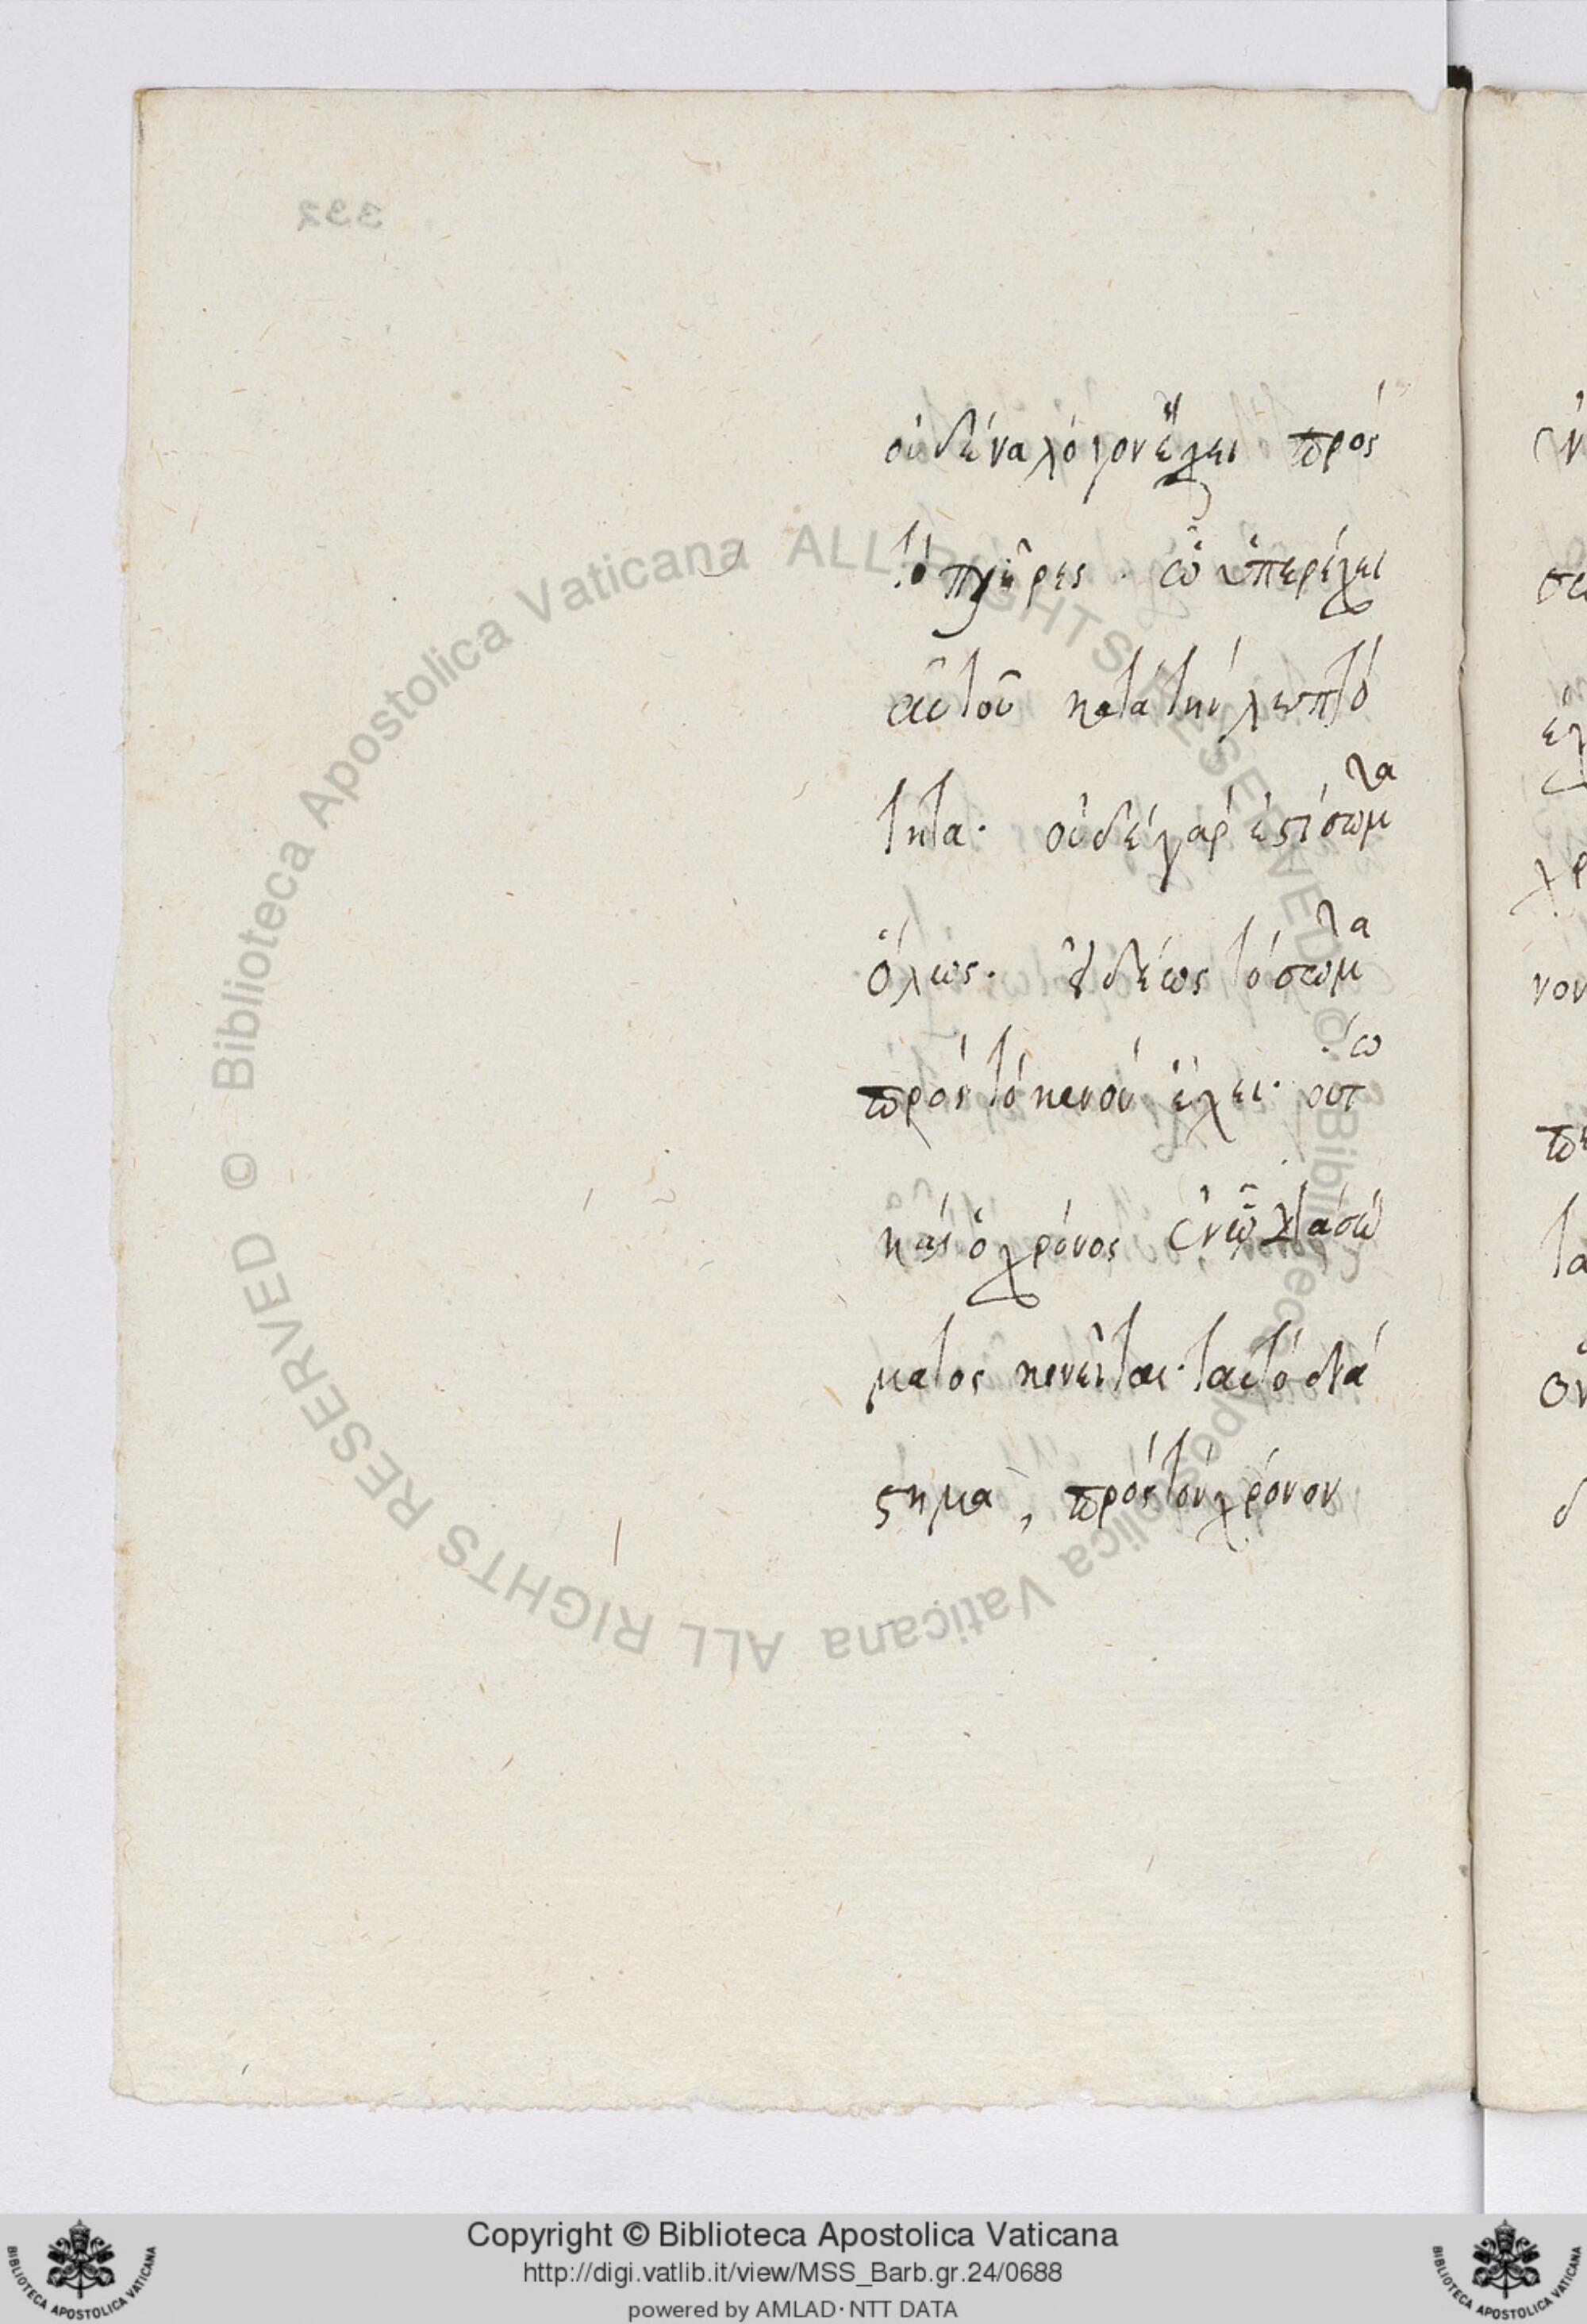 οὐδένα λόγον ἔχει πρός
τὸ πλῆρες. ᾧ ὑπερέχει
αὐτοῦ κατὰ τὴν λεπτό
τητα. οὐδὲ γάρ ἐστι σῶμα
ὅλως. οὐδὲ ὡς τὸ σῶμα
πρὸς τὸ κενὸν ἔχει. οὕτω
καὶ ὁ χρόνος ἐν ᾧ τὰ σώ
ματος κινεῖται. τὰ αὐτὸ διά
στημα, πρὸς τὸν χρόνον
332
© Biblioteca Apostolica Vaticana ALL RIGHTS RESERVED © Biblioteca Apostolica Vaticana ALL RIGHTS RESERVED
Copyright © Biblioteca Apostolica Vaticana
http://digi.vatlib.it/view/MSS_Barb.gr.24/0688
powered by AMLAD·NTT DATA
BIBLIOTECA APOSTOLICA VATICANA
BIBLIOTECA APOSTOLICA VATICANA